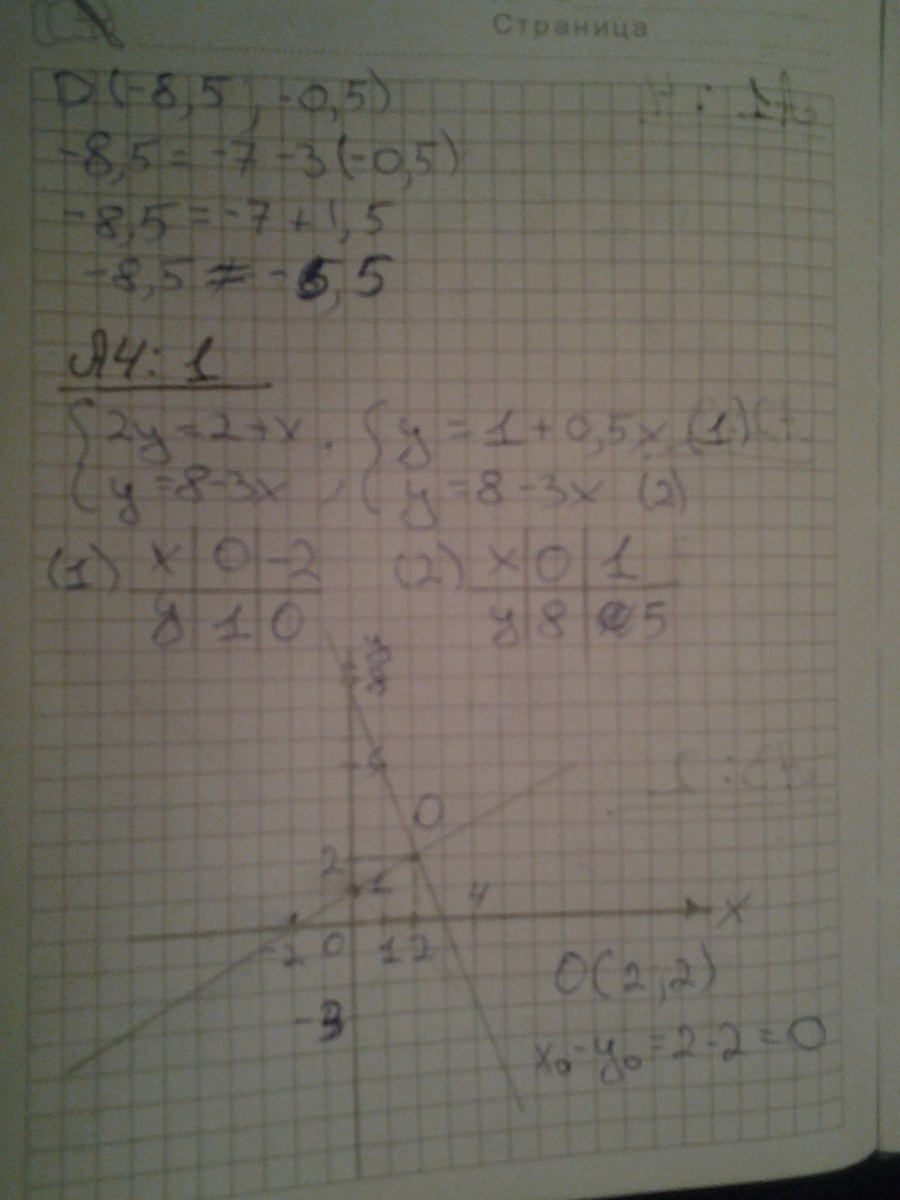 Страница
D (-8,5 ; -0,5)
-8,5 = -7 -3(-0,5)
-8,5 = -7 + 1,5
-8,5 ≠ -5,5
А4: 1
{2y = 2 + x ; {y = 1 + 0,5x (1)
{y = 8 - 3x {y = 8 - 3x (2)
(1) x 0 -2 (2) x 0 1
y 1 0 y 8 5
y
8
5
O
2
1
4
x
-2 0 1 2
O(2,2)
-3
x₀ - y₀ = 2 - 2 = 0